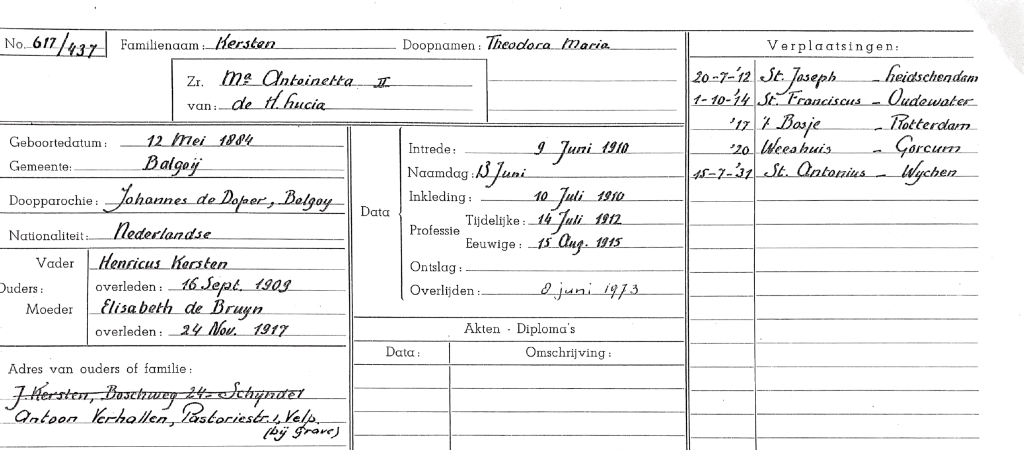 No. 617/437 Familienaam: Kersten Doopnamen: Theodora Maria
Zr. Ma Antoinetta II
van: de H. Lucia
Geboortedatum: 12 Mei 1884
Gemeente: Balgoij
Doopparochie: Johannes de Doper, Balgoy
Nationaliteit: Nederlandse
Ouders:
Vader Henricus Kersten
overleden: 16 Sept. 1909
Moeder Elisabeth de Bruyn
overleden: 24 Nov. 1917
Adres van ouders of familie:
J Kersten, Boschweg 24 - Schyndel
Antoon Verhallen, Pastoriestr. 1, Velp
(bij Grave)
Data
Intrede: 9 Juni 1910
Naamdag: 13 Juni
Inkleding: 10 Juli 1910
Professie Tijdelijke: 14 Juli 1912
Eeuwige: 15 Aug. 1915
Ontslag:
Overlijden: 8 juni 1973
Akten - Diploma's
Data: Omschrijving:
Verplaatsingen:
20-7-'12 St. Joseph - Leidschendam
1-10-'14 St. Franciscus - Oudewater
'17 't Bosje - Rotterdam
'20 Weeshuis - Gorcum
15-7-'31 St. Antonius - Wychen